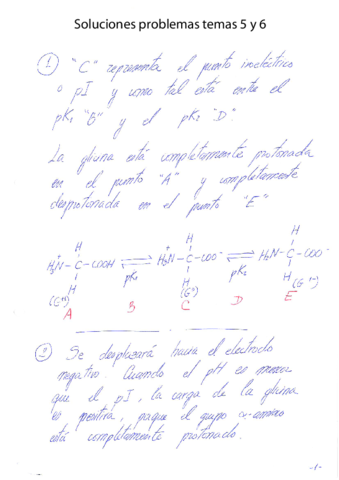 Soluciones problemas temas 5 y 6
① "C" representa el punto isoeléctrico
o pI y como tal está entre el
pK₁ "B" y el pK₂ "D".
La glicina está completamente protonada
en el punto "A" y completamente
desprotonada en el punto "E"
H H H
H₃N⁺ – C – COOH ⇌ H₃N⁺ – C – COO⁻ ⇌ H₂N – C – COO⁻
pK₁ pK₂
H H H
A B C D E
② Se desplazará hacia el electrodo
negativo. Cuando el pH es menor
que el pI, la carga de la glicina
es positiva, porque el grupo α-amino
está completamente protonado.
-1-